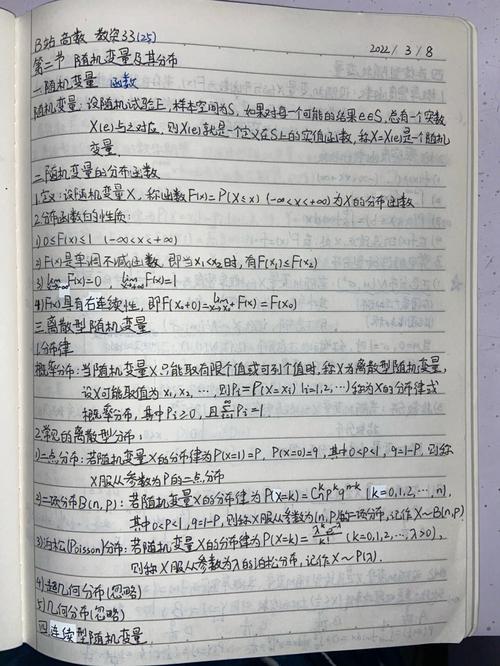 B站 高数 教资33(25)
2022/3/8
第二节 随机变量及其分布
一.随机变量 函数
随机变量:设随机试验E,样本空间为S,如果对每一个可能的结果e∈S,总有一个实数
X(e)与之对应,则X(e)就是一个定义在S上的实值函数,称X=X(e)是一个随机
变量.
二.随机变量的分布函数
1.定义:设随机变量X,称函数F(x)=P(X≤x) (-∞<x<+∞)为X的分布函数
2.分布函数的性质:
1)0≤F(x)≤1 (-∞<x<+∞)
2)F(x)是单调不减函数,即当x₁<x₂时,有F(x₁)≤F(x₂)
3) lim F(x)=0 lim F(x)=1
4)F(x)具有右连续性,即F(x₀+0)=lim x→x₀⁺ F(x)=F(x₀)
三.离散型随机变量
1.分布律
概率分布:当随机变量X只能取有限个值或可列个值时,称X为离散型随机变量,
设X可能取值为x₁,x₂,…,则Pi=P(X=xi) (i=1,2,…)称为X的分布律或
概率分布,其中Pi≥0,且∑Pi=1
2.常见的离散型分布:
1)二点分布:若随机变量X的分布律为P(X=1)=P,P(X=0)=q,其中0<P<1,q=1-P,则称
X服从参数为P的二点分布
2)二项分布B(n,p):若随机变量X的分布律为P(X=k)=Cₙᵏpᵏqⁿ⁻ᵏ (k=0,1,2,…,n),
其中0<P<1,q=1-P,则称X服从参数为(n,p)的二项分布,记作X~B(n,p)
3)泊松(Poisson)分布:若随机变量X的分布律为P(X=k)=λᵏe⁻λ/k! (k=0,1,2,…,λ>0),
则称X服从参数为λ的泊松分布,记作X~P(λ).
4)超几何分布(忽略)
5)几何分布(忽略)
四.连续型随机变量